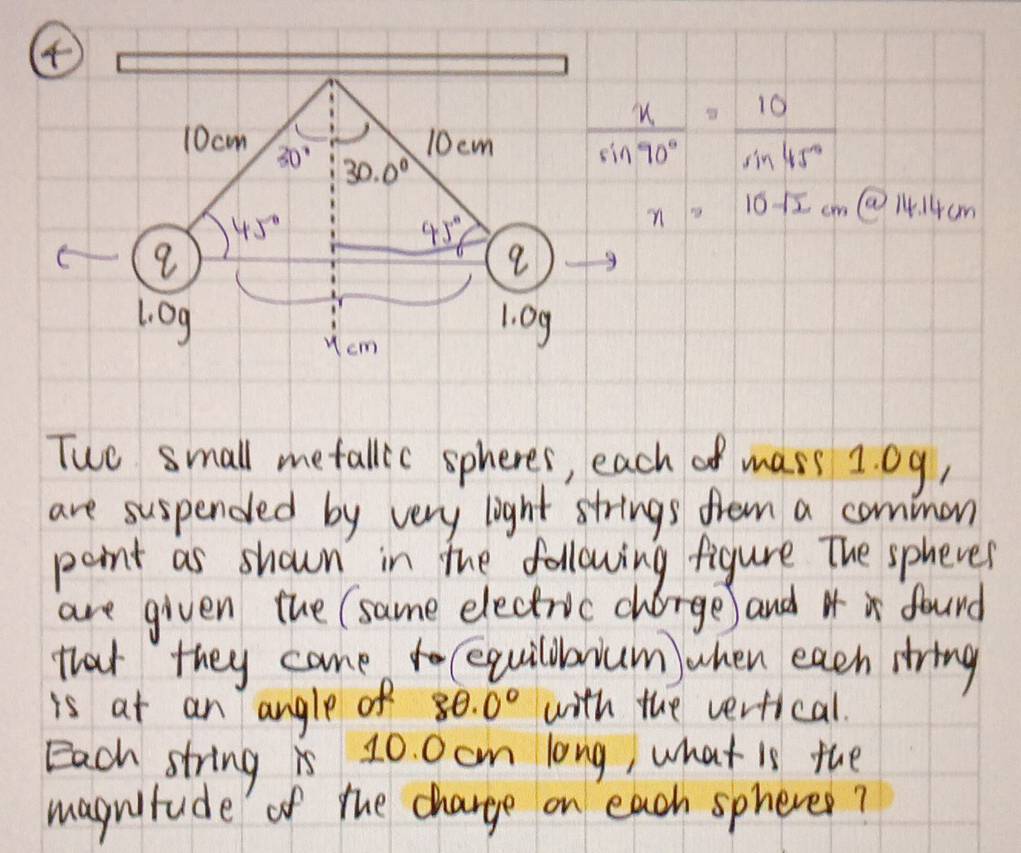 4
10cm
10cm
30°
30.0°
45°
45°
q
q
1.0g
1.0g
x cm
x / sin 90° = 10 / sin 45°
x = 10√2 cm @ 14.14cm
Two small metallic spheres, each of mass 1.0g,
are suspended by very light strings from a common
point as shown in the following figure The spheres
are given the (same electric charge) and it is found
that they come to (equilibrium) when each string
is at an angle of 30.0° with the vertical.
Each string is 10.0cm long, what is the
magnitude of the charge on each spheres?